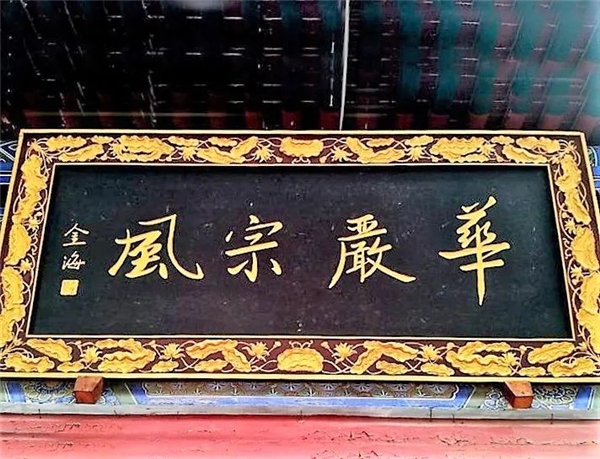 華嚴宗風
全海